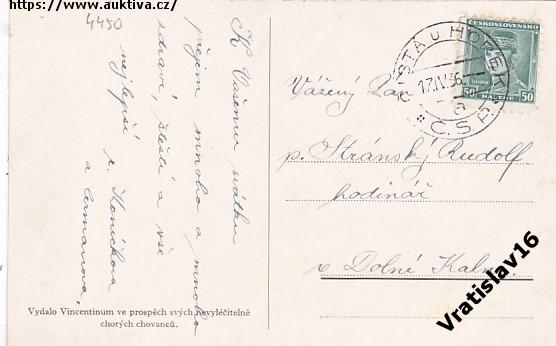 https://www.aukctiva.cz/
4450
K Vašemu svátku
přejem mnoho a mnoho
zdraví, štěstí a vše
nejlepší r. Heničkova
a Čermanova,
Vydalo Vincentinum ve prospěch svých nevyléčitelně
chorých chovanců.
ČESKOSLOVENSKO
50
50
17.IV.36
Č.S.P.
Vážený Pan
p. Stránský Rudolf
hodinář
v Dolní Kalné
Vratislav16